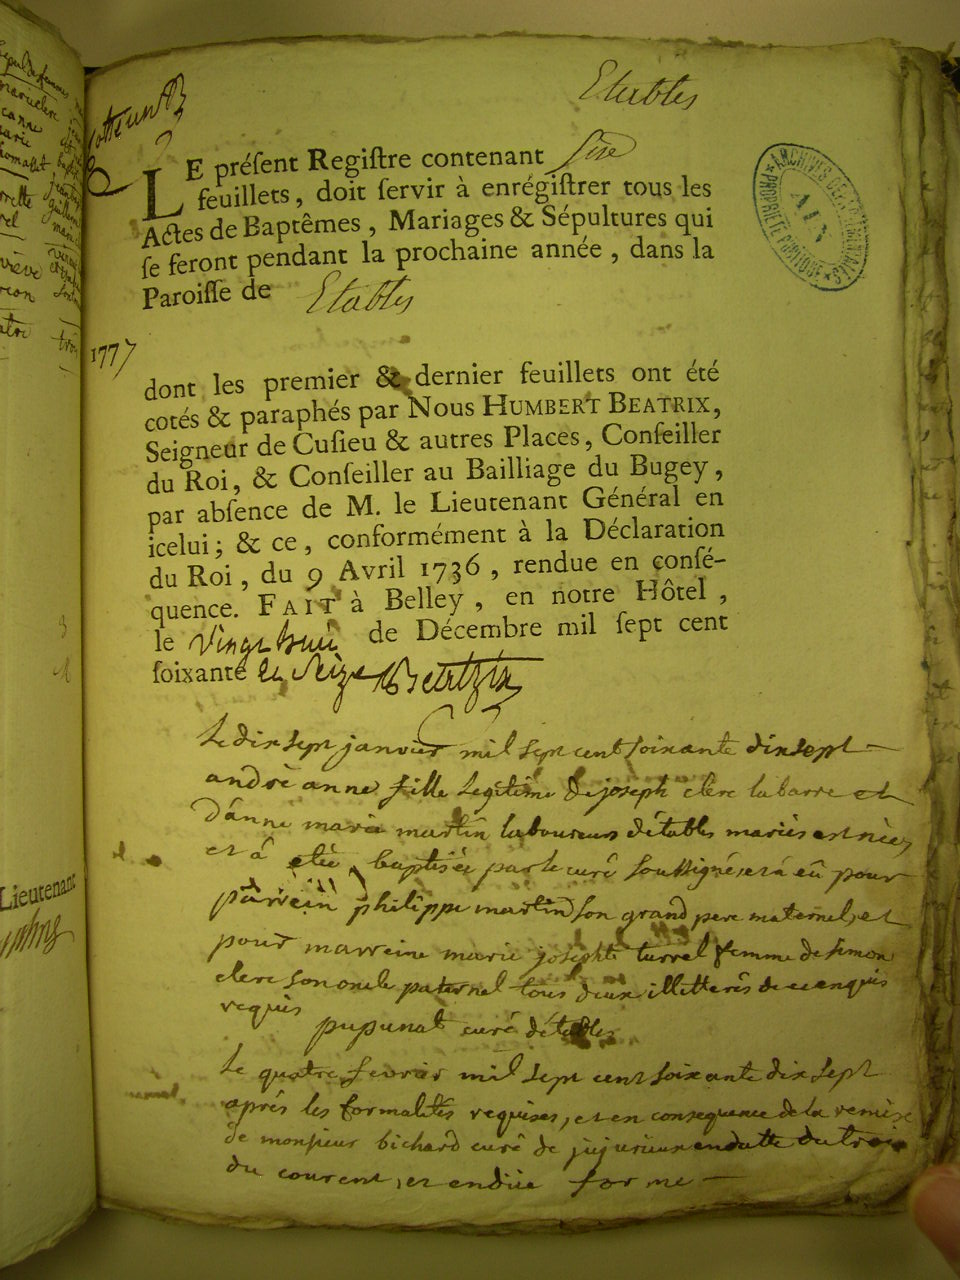 Etables
cotte un
LE préſent Regiſtre contenant ſixe
feuillets, doit ſervir à enrégiſtrer tous les
Actes de Baptêmes, Mariages & Sépultures qui
ſe feront pendant la prochaine année, dans la
Paroiſſe de Etables
ARCHIVES DÉPARTEMENTALES
AIN
PROPRIÉTÉ PUBLIQUE
1777
dont les premier & dernier feuillets ont été
cotés & paraphés par Nous HUMBERT BEATRIX,
Seigneur de Cuſieu & autres Places, Conſeiller
du Roi, & Conſeiller au Bailliage du Bugey,
par abſence de M. le Lieutenant Général en
icelui; & ce, conformément à la Déclaration
du Roi, du 9 Avril 1736, rendue en conſé-
quence. FAIT à Belley, en notre Hôtel,
le vingt huit de Décembre mil ſept cent
ſoixante et seize Beatrix
Le dix sept janvier mil sept cent soixante dix sept
andrè anne fille legitime de joseph clerc labarre et
d'anne marie martin laboureurs détables mariés est nèe,
et â etèe baptisée par le curé soussigné et a eû pour
parrein philippe martin son grand pere maternel, et
pour marreine marie josephte turrel femme de simon
clerc son oncle paternel tous deux illetterés de ce enquis
requis
pupunat curé détables
Le quatre fevrier mil sept cent soixante dix sept
aprés les formalités requises, et en consequence de la remise
de monsieur bichard curé de jujurieux en datte du trois
du courent, et en düe forme
Lieutenant